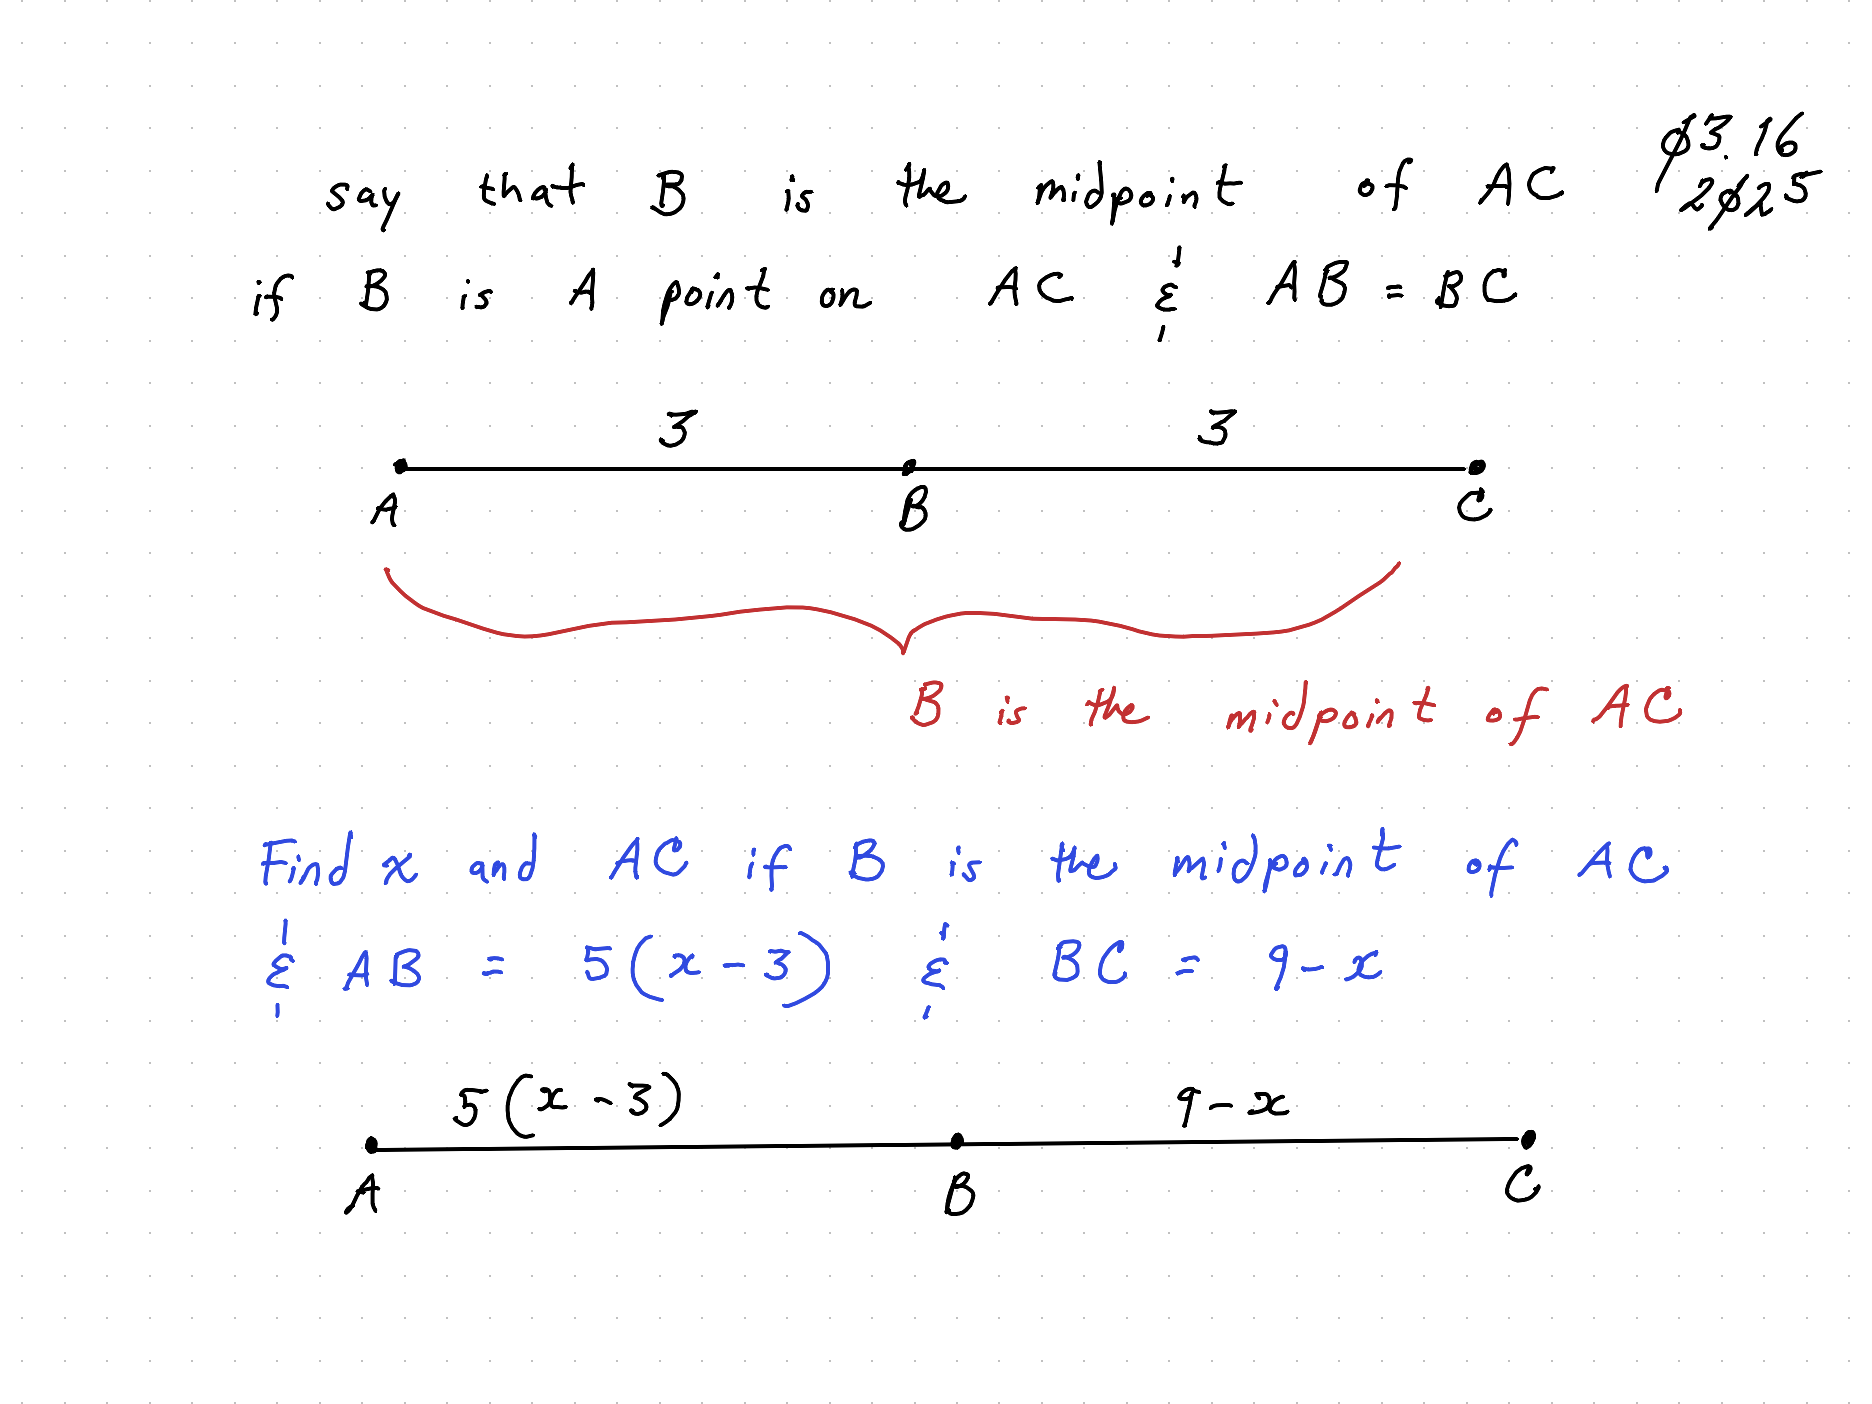 say that B is the midpoint of AC
03.16
2025
if B is A point on AC & AB = BC
3 3
A B C
B is the midpoint of AC
Find x and AC if B is the midpoint of AC
& AB = 5(x-3) & BC = 9-x
5(x-3) 9-x
A B C